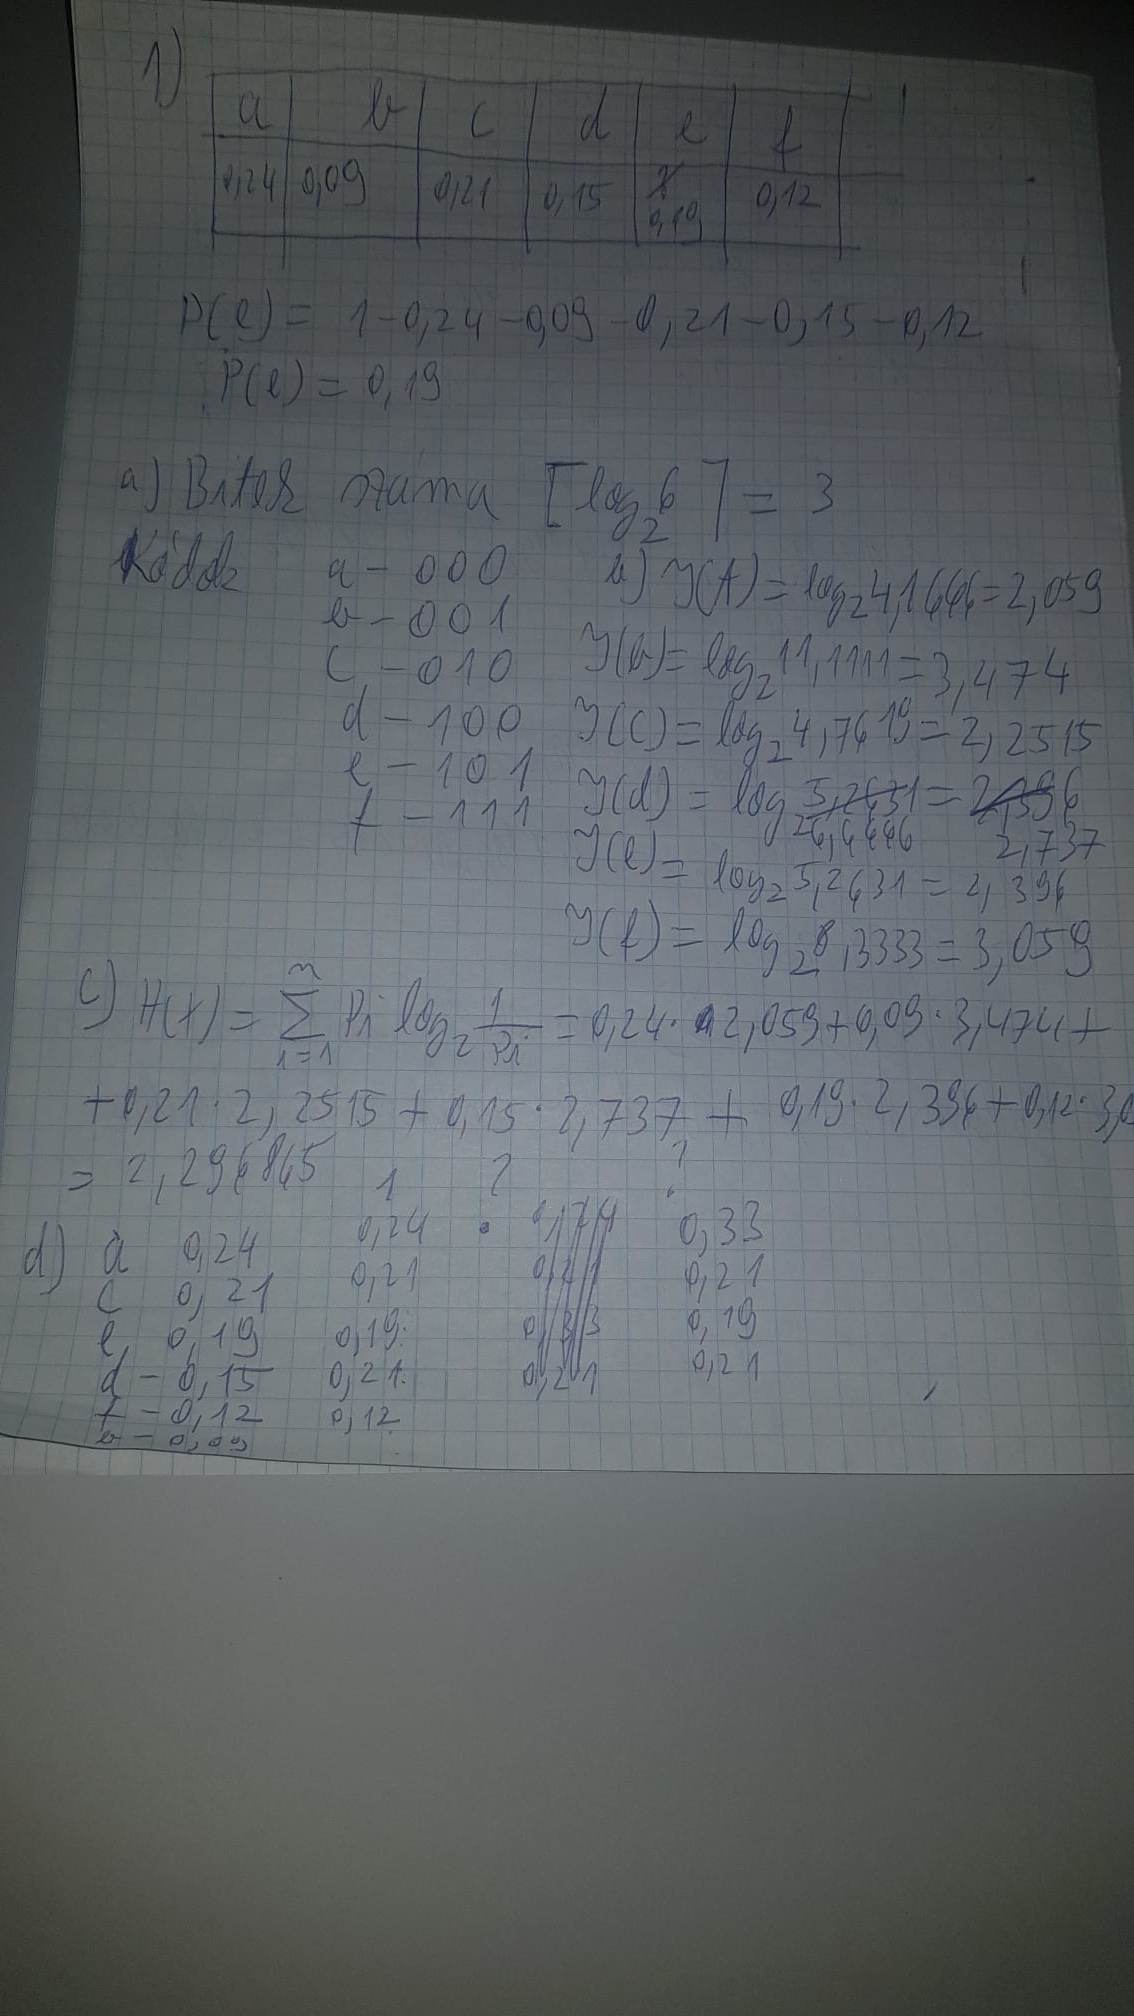 1)
a b c d e f
0,24 0,09 0,21 0,15 0,19 0,12
P(e) = 1-0,24-0,09-0,21-0,15-0,12
P(e) = 0,19
a) Bitek száma ⌈log₂6⌉ = 3
Kódok a - 000
b - 001
c - 010
d - 100
e - 101
f - 111
b) I(A) = log₂4,1666 = 2,059
I(b) = log₂11,1111 = 3,474
I(c) = log₂4,7619 = 2,2515
I(d) = log₂ 5,2631 = 2,396
6,6666 2,737
I(e) = log₂5,2631 = 2,396
I(f) = log₂8,3333 = 3,059
c) H(X) = Σ n i=1 Pi log₂ 1/Pi = 0,24·2,059+0,09·3,474+
+0,21·2,2515+0,15·2,737+0,19·2,396+0,12·3,0
= 2,296865
1 2 ?
d) a 0,24 0,24 0,33
c 0,21 0,21 0,21 0,21
e 0,19 0,19 0,33 0,19
d - 0,15 0,21 0,21 0,21
f - 0,12 0,12
b - 0,09